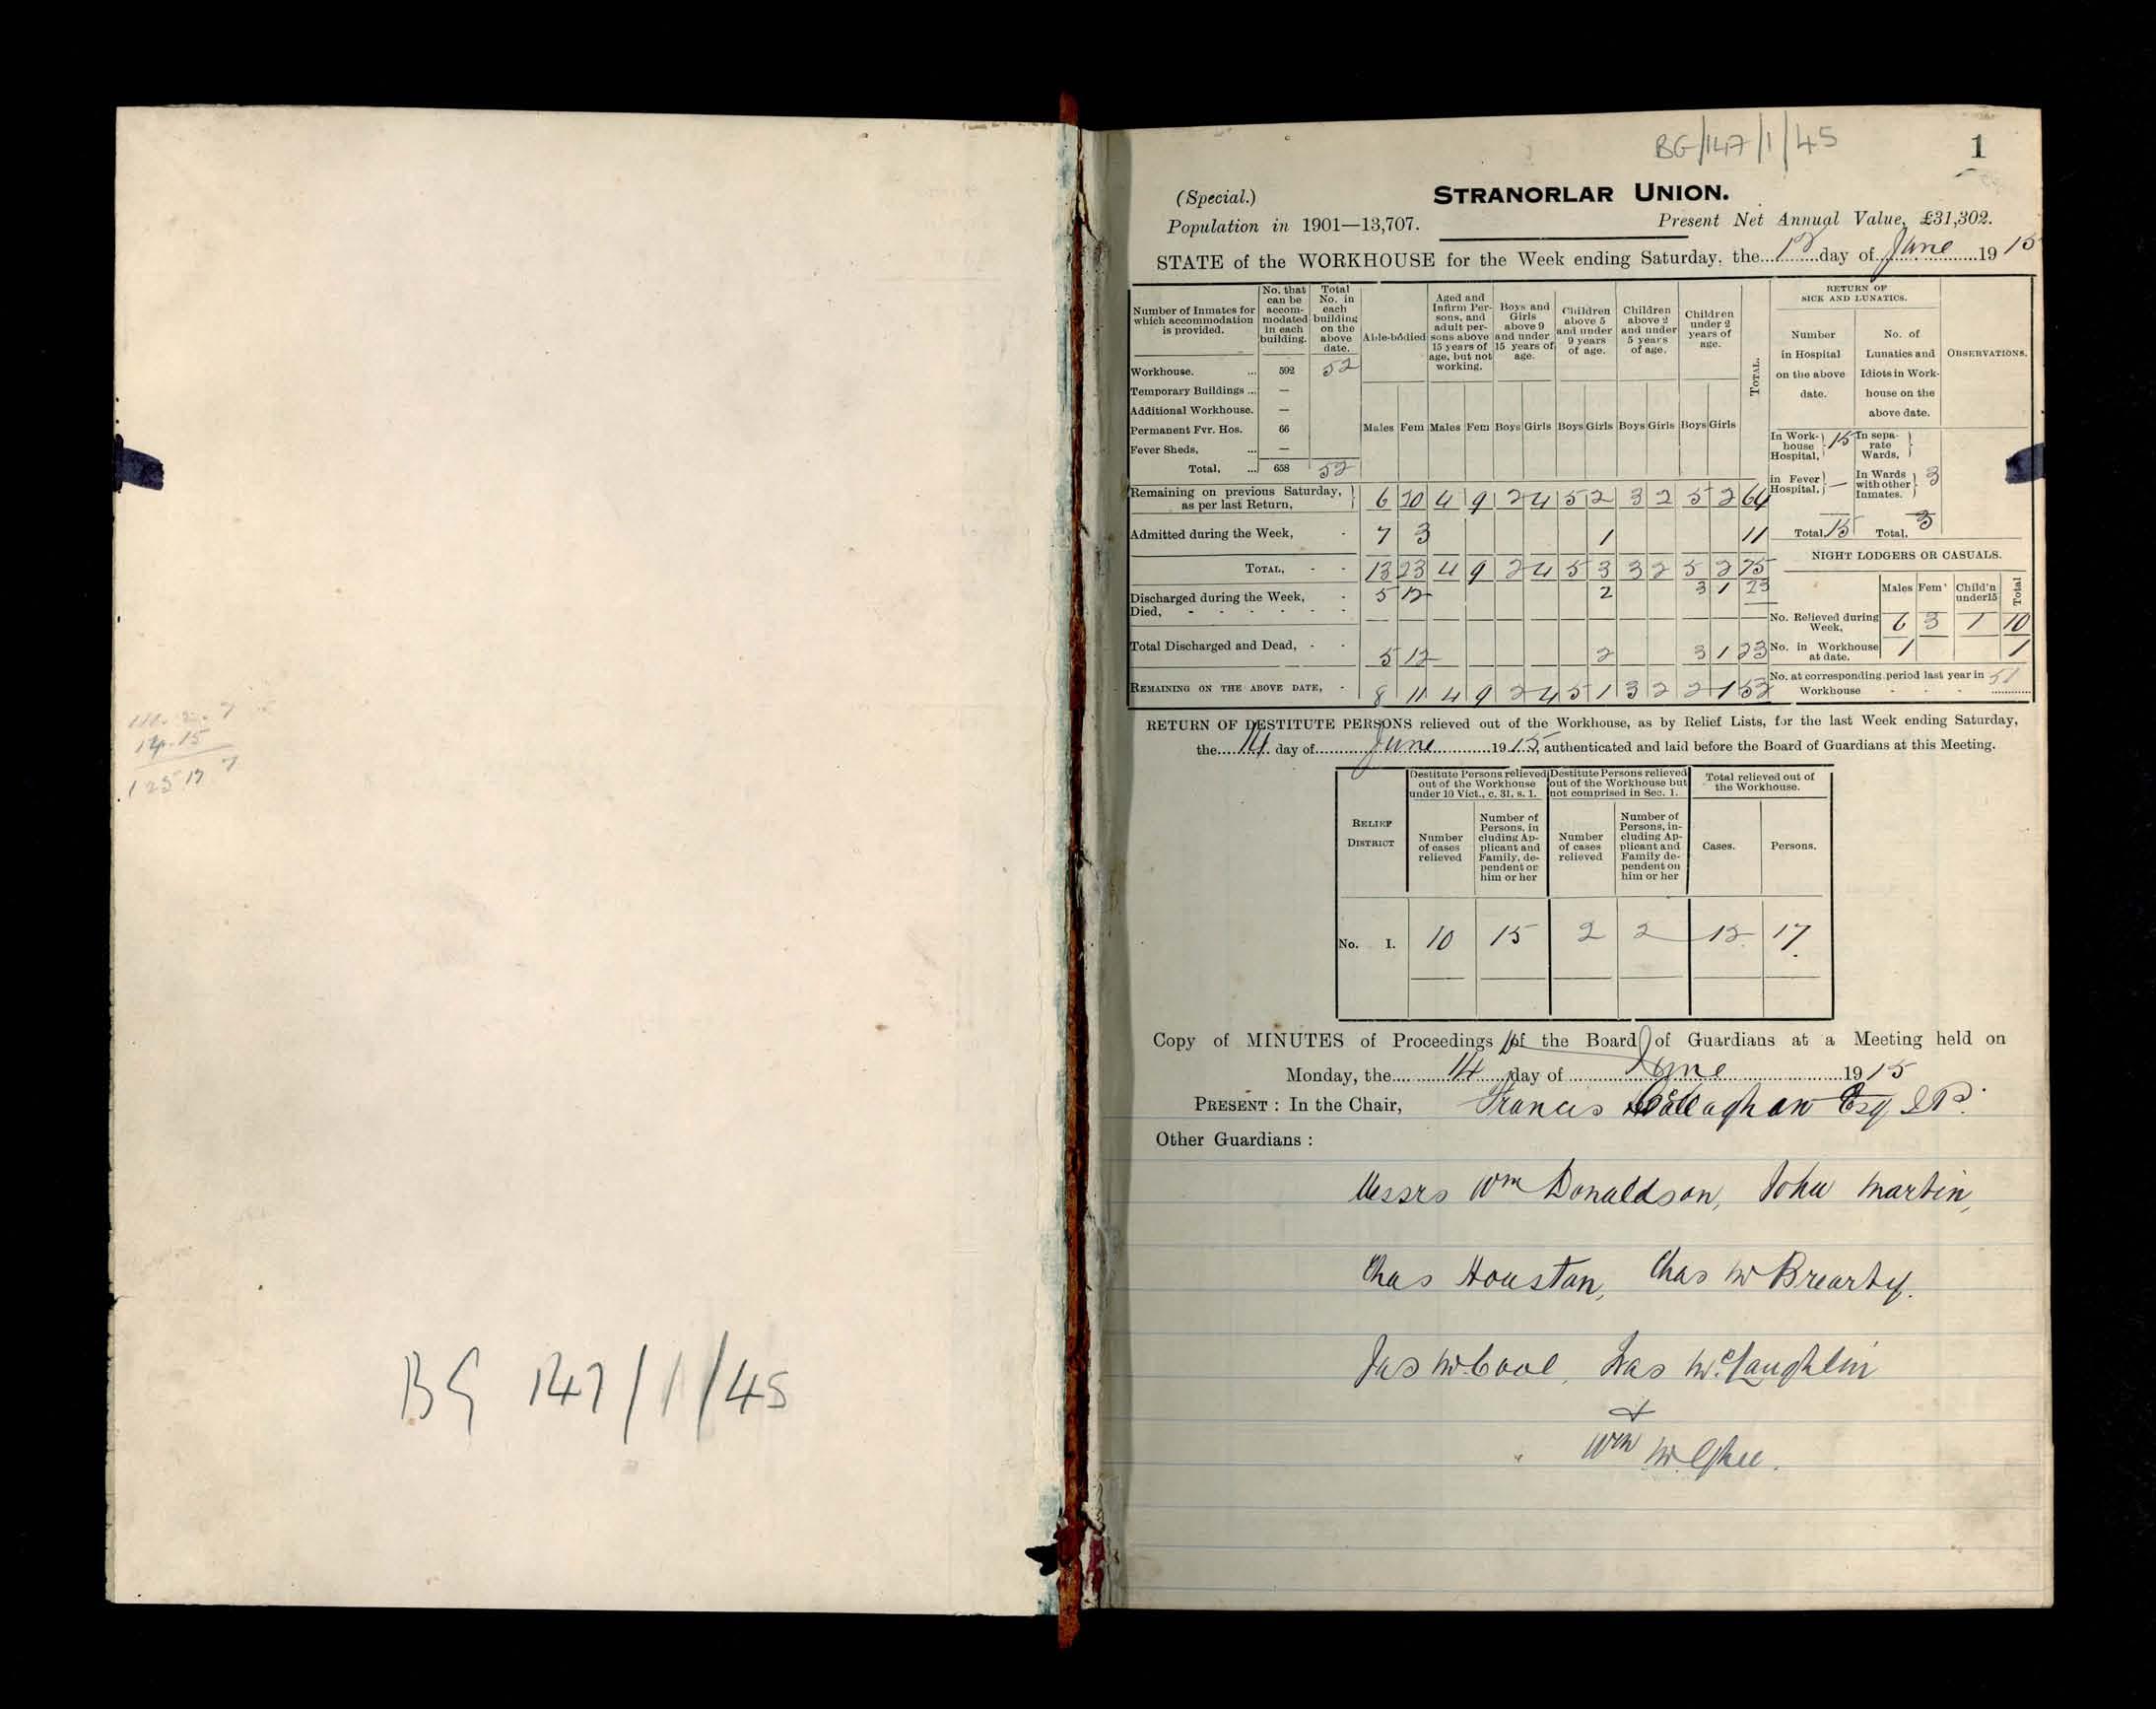 14.15
BG 147/1/45
BG/147/1/45
1
(Special.)
STRANORLAR UNION.
Population in 1901—13,707.
Present Net Annual Value, £31,302.
STATE of the WORKHOUSE for the Week ending Saturday, the 12 day of June 1915
Number of Inmates for which accommodation is provided.
No. that can be accommodated in each building.
Total No. in each building on the above date.
Able-bodied
Aged and Infirm Persons, and adult persons above 15 years of age, but not working.
Boys and Girls above 9 and under 15 years of age.
Children above 5 and under 9 years of age.
Children above 2 and under 5 years of age.
Children under 2 years of age.
TOTAL.
RETURN OF SICK AND LUNATICS.
Number in Hospital on the above date.
No. of Lunatics and Idiots in Workhouse on the above date.
OBSERVATIONS.
Workhouse. ... 592 52
Temporary Buildings ... —
Additional Workhouse. —
Permanent Fvr. Hos. 66
Fever Sheds, ... —
Total, ... 658 52
Males Fem Males Fem Boys Girls Boys Girls Boys Girls Boys Girls
In Workhouse Hospital, 15
In separate Wards,
in Fever Hospital, —
In Wards with other Inmates. 3
Total, 15 Total, 3
Remaining on previous Saturday, as per last Return, 6 20 4 9 2 4 5 2 3 2 5 2 64
Admitted during the Week, - 7 3 1 11
TOTAL, - - 13 23 4 9 2 4 5 3 3 2 5 2 75
Discharged during the Week, - 5 12 2 3 1 23
Died, - - - - - -
Total Discharged and Dead, - - 5 12 2 3 1 23
REMAINING ON THE ABOVE DATE, - 8 11 4 9 2 4 5 1 3 2 2 1 52
NIGHT LODGERS OR CASUALS.
Males Fem' Child'n under 15 Total
No. Relieved during Week, 6 3 1 10
No. in Workhouse at date. 1 1
No. at corresponding period last year in Workhouse - - - 51
RETURN OF DESTITUTE PERSONS relieved out of the Workhouse, as by Relief Lists, for the last Week ending Saturday,
the 14 day of June 1915, authenticated and laid before the Board of Guardians at this Meeting.
RELIEF DISTRICT
Destitute Persons relieved out of the Workhouse under 10 Vict., c. 31, s. 1.
Destitute Persons relieved out of the Workhouse but not comprised in Sec. 1.
Total relieved out of the Workhouse.
Number of cases relieved
Number of Persons, in cluding Applicant and Family, dependent on him or her
Number of cases relieved
Number of Persons, including Applicant and Family dependent on him or her
Cases.
Persons.
No. I. 10 15 2 2 12 17
Copy of MINUTES of Proceedings of the Board of Guardians at a Meeting held on
Monday, the 14 day of June 1915
PRESENT : In the Chair, Francis O'Callaghan Esq J.P.
Other Guardians :
Messrs Wm Donaldson, John Martin,
Chas Houston, Chas McBrearty.
Jas McCool, Jas McLaughlin
&
Wm McGhee.